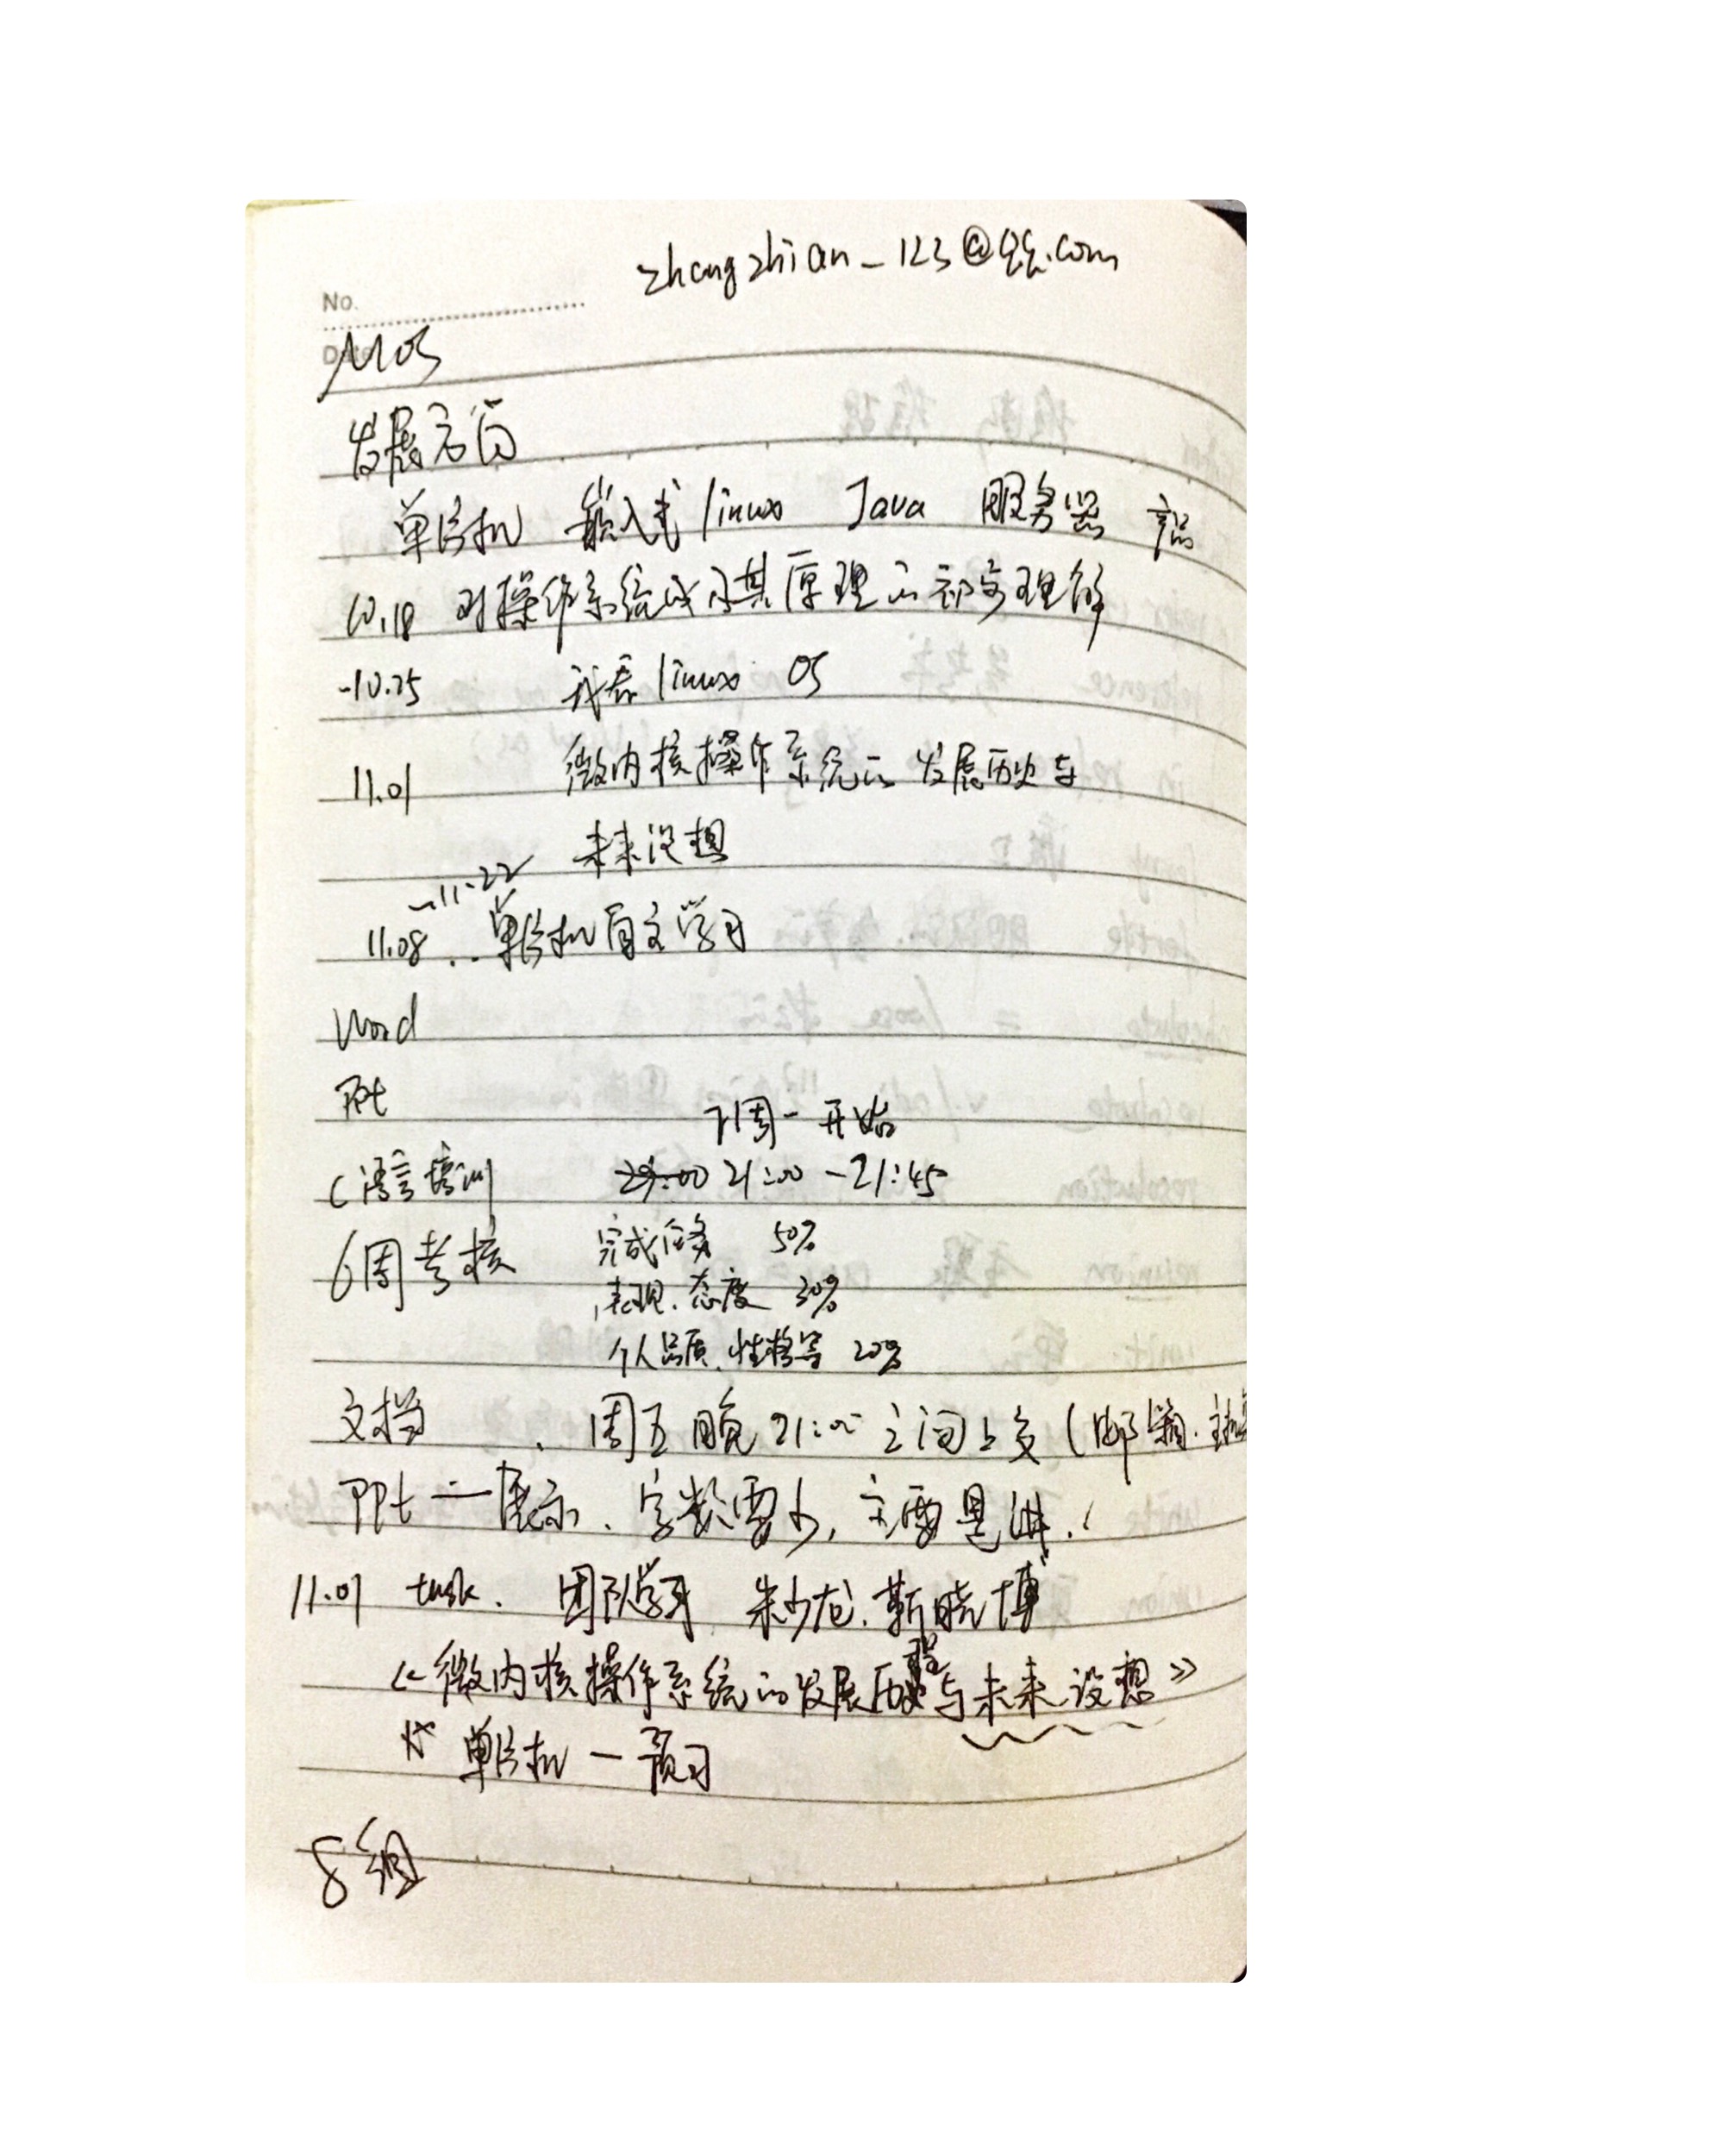 zhangzhian_123@qq.com
No.
Date
MOS
发展方向
单片机 嵌入式linux Java 服务器
10.18 对操作系统以及其原理的初步理解
-10.25 我看linux OS
11.01 微内核操作系统的发展历史与
未来设想
~11.22
11.08 .. 单片机自主学习
Word
PPt
下周一开始
C语言培训 21:00 -21:45
6周考核 完成任务 50%
表现.态度 30%
个人品质.性格等 20%
文档 . 周五晚21:00之间上交(邮箱.
PPt 一展示. 字数要少, 主要是讲.
11.01 task. 团队学习 朱少龙.靳晓博
《微内核操作系统的发展历程与未来设想》
单片机 — 预习
8组